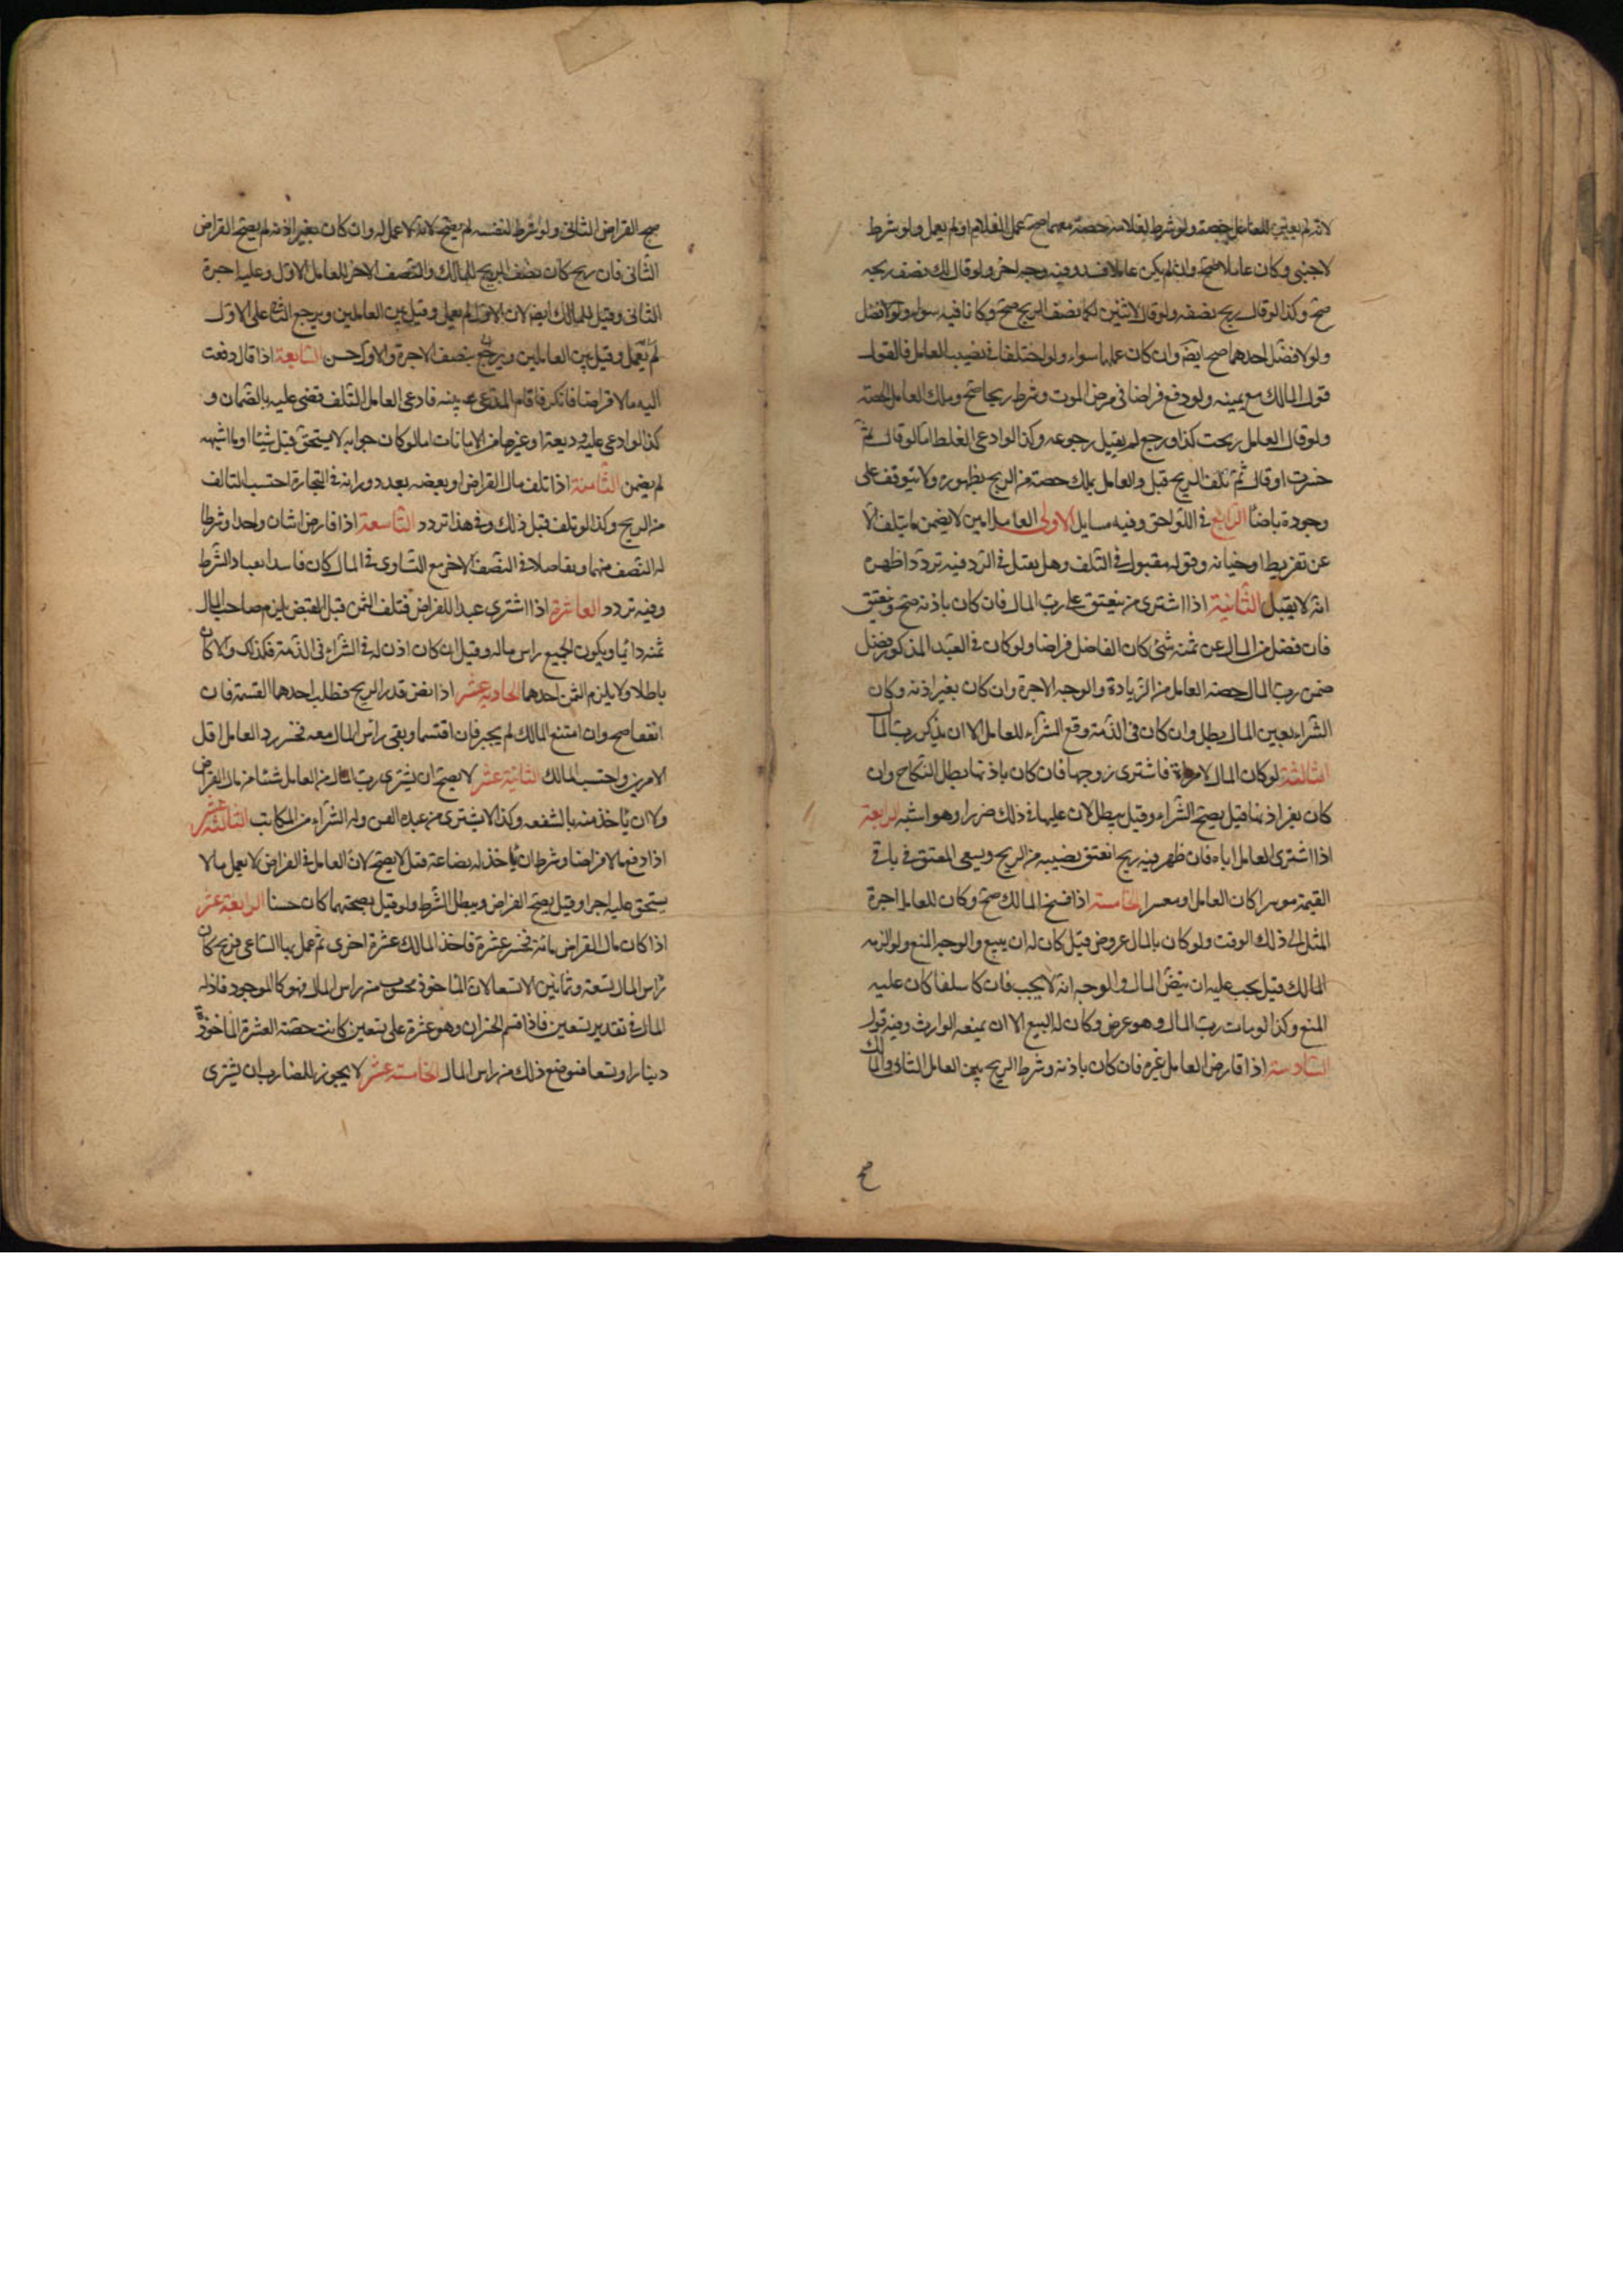 لانه لم يعين للعامل حصة ولو شرط لغلامه حصة معهما صح عمل الغلام او لم يعمل ولو شرط
لاجنبي وكان عاملا صح وان لم يكن عاملا فسد وفيه وجه اخر ولو قال لك نصف ربحه
صح وكذا لو قال ربح نصفه ولو قال لاثنين لكما نصف الربح صح وكانا فيه سواء ولو فضل
ولو لا فضل احدهما صح ايض وان كان عملهما سواء ولو اختلفا في نصيب العامل فالقول
قول المالك مع يمينه ولو دفع قراضا في مرض الموت وشرط ربحا صح وملك العامل الحصة
ولو قال العامل ربحت كذا ورجع لم يقبل رجوعه وكذا لو ادعى الغلط اما لو قال ثم
خسرت او قال ثم تلف الربح قبل والعامل يملك حصته من الربح بظهوره ولا يتوقف على
وجوده ناضا الرابع في اللواحق وفيه مسايل الاولى العامل امين لا يضمن ما يتلف الا
عن تفريط او خيانه وقوله مقبول في التلف وهل يقبل في الرد فيه تردد اظهره
انه لا يقبل الثانية اذا اشترى من ينعتق على رب المال فان كان باذنه صح وينعتق
فان فضل من المال عن ثمنه شئ كان الفاضل قراضا ولو كان في العبد المذكور فضل
ضمن رب المال حصة العامل من الزيادة والوجه الاجرة وان كان بغير اذنه وكان
الشراء بعين المال بطل وان كان في الذمة وقع الشراء للعامل الا ان يذكر رب المال
الثالثة لو كان المال لامراة فاشترى زوجها فان كان باذنها بطل النكاح وان
كان بغير اذنها قيل يصح الشراء وقيل يبطل لان عليها في ذلك ضررا وهو اشبه الرابعة
اذا اشترى العامل اباه فان ظهر فيه ربح انعتق نصيبه من الربح ويسعى المعتق في باقي
القيمة موسرا كان العامل او معسرا الخامسة اذا فسخ المالك صح وكان للعامل اجرة
المثل الى ذلك الوقت ولو كان بالمال عروض قيل كان له ان يبيع والوجه المنع ولو الزمه
المالك قيل يجب عليه ان ينض المال والوجه انه لا يجب فان كا سلفا كان عليه
المنع وكذا لو مات رب المال وهو عرض وكان له البيع الا ان يمنعه الوارث وفيه قول
السادسة اذا قارض العامل غيره فان كان باذنه وشرط الربح بين العامل الثاني والمالك
صح
صح القراض الثاني ولو شرط لنفسه لم يصح لانه لا عمل له وان كان بغير اذنه لم يصح القراض
الثاني فان ربح كان نصف الربح للمالك والنصف الاخر للعامل الاول وعليه اجرة
الثاني وقيل للمالك ايض لان الاول لم يعمل وقيل بين العاملين ويرجع الثاني على الاول
لم يعمل وقيل بين العاملين ويرجع بنصف الاجرة والاول حسن السابعة اذا قال دفعت
اليه مالا قراضا فانكر فاقام المدعي بينه فادعى العامل التلف قضى عليه بالضمان و
كذا لو ادعى عليه وديعة او غيرها من الامانات اما لو كان جوابه لا يستحق قبلي شيئا او ما اشبهه
لم يضمن الثامنة اذا تلف مال القراض او بعضه بعد دورانه في التجارة احتسب التالف
من الربح وكذا لو تلف قبل ذلك وفي هذا تردد التاسعة اذا قارض اثنان واحدا وشرطا
له النصف منهما وتفاضلا في النصف الاخر مع التساوي في المال كان فاسدا لفساد الشرط
وفيه تردد العاشرة اذا اشترى عبدا للقراض فتلف الثمن قبل القبض لزم صاحب المال
ثمنه دائما ويكون الجميع راس ماله وقيل ان كان اذن له في الشراء في الذمة فكذلك والا كان
باطلا ولا يلزم الثمن احدهما الحادية عشر اذا نض قدر الربح فطلب احدهما القسمة فان
اتفقا صح وان امتنع المالك لم يجبر فان اقتسما وبقى راس المال معه فخسر رد العامل اقل
الامرين واحتسب المالك الثانية عشر لا يصح ان يشترى رب المال من العامل شئا من مال القراض
ولا ان ياخذ منه بالشفعه وكذا لا يشترى من عبده القن وله الشراء من المكاتب الثالثة عشر
اذا دفع مالا قراضا وشرط ان ياخذ له بضاعة قيل لا يصح لان العامل في القراض لا يعمل ما لا
يستحق عليه اجرا وقيل يصح القراض ويبطل الشرط ولو قيل بصحتهما كان حسنا الرابعة عشر
اذا كان مال القراض مائة فخسر عشرة فاخذ المالك عشرة اخرى ثم عمل بها الساعي فربح كان
راس المال تسعة وثمانين الا تسعا لان الماخوذ محسوب من راس المال فهو كالموجود فاذا له
المال في تقدير تسعين فاذا قسم الخسران وهو عشرة على تسعين كانت حصة العشرة الماخوذة
دينارا وتسعا فيوضع ذلك من راس المال الخامسة عشر لا يجوز للمضارب ان يشترى